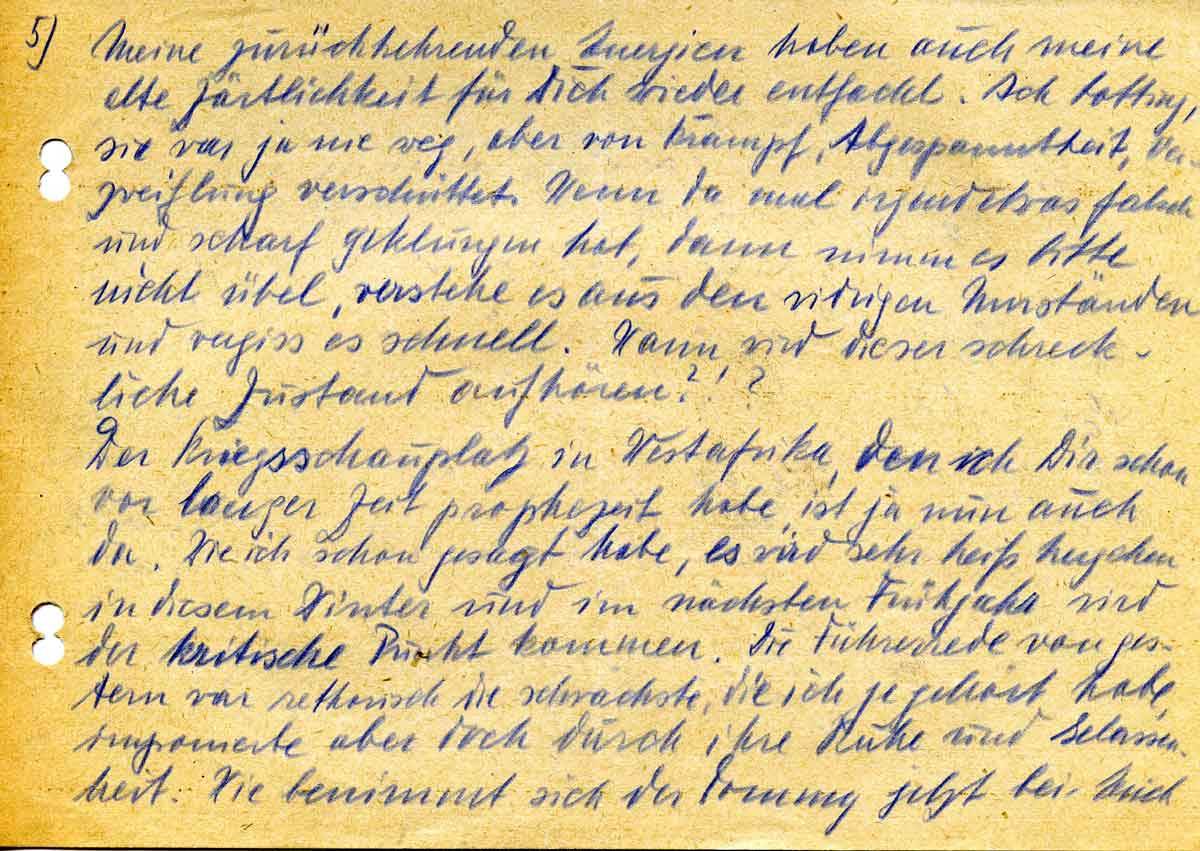 5) Meine zurückkehrenden Energien haben auch meine
alte Zärtlichkeit für Dich wieder entfacht. Ach
sie war ja nie weg, aber von Krampf, Abgespanntheit, Ver-
zweiflung verschüttet. Wenn da mal irgendetwas falsch
und scharf geklungen hat, dann nimm es bitte
nicht übel, verstehe es aus den widrigen Umständen
und vergiss es schnell. Wann wird dieser schreck-
liche Zustand aufhören?!?
Der Kriegsschauplatz in Westafrika, den ich Dir schon
vor langer Zeit prophezeit habe, ist ja nun auch
da. Wie ich schon gesagt habe, es wird sehr heiß hergehen
in diesem Winter und im nächsten Frühjahr wird
der kritische Punkt kommen. Die Führerrede von ges-
tern war rethorisch die schwächste, die ich je gehört habe,
imponierte aber doch durch ihre Ruhe und Gelassen-
heit. Wie benimmt sich der Tommy jetzt bei Euch